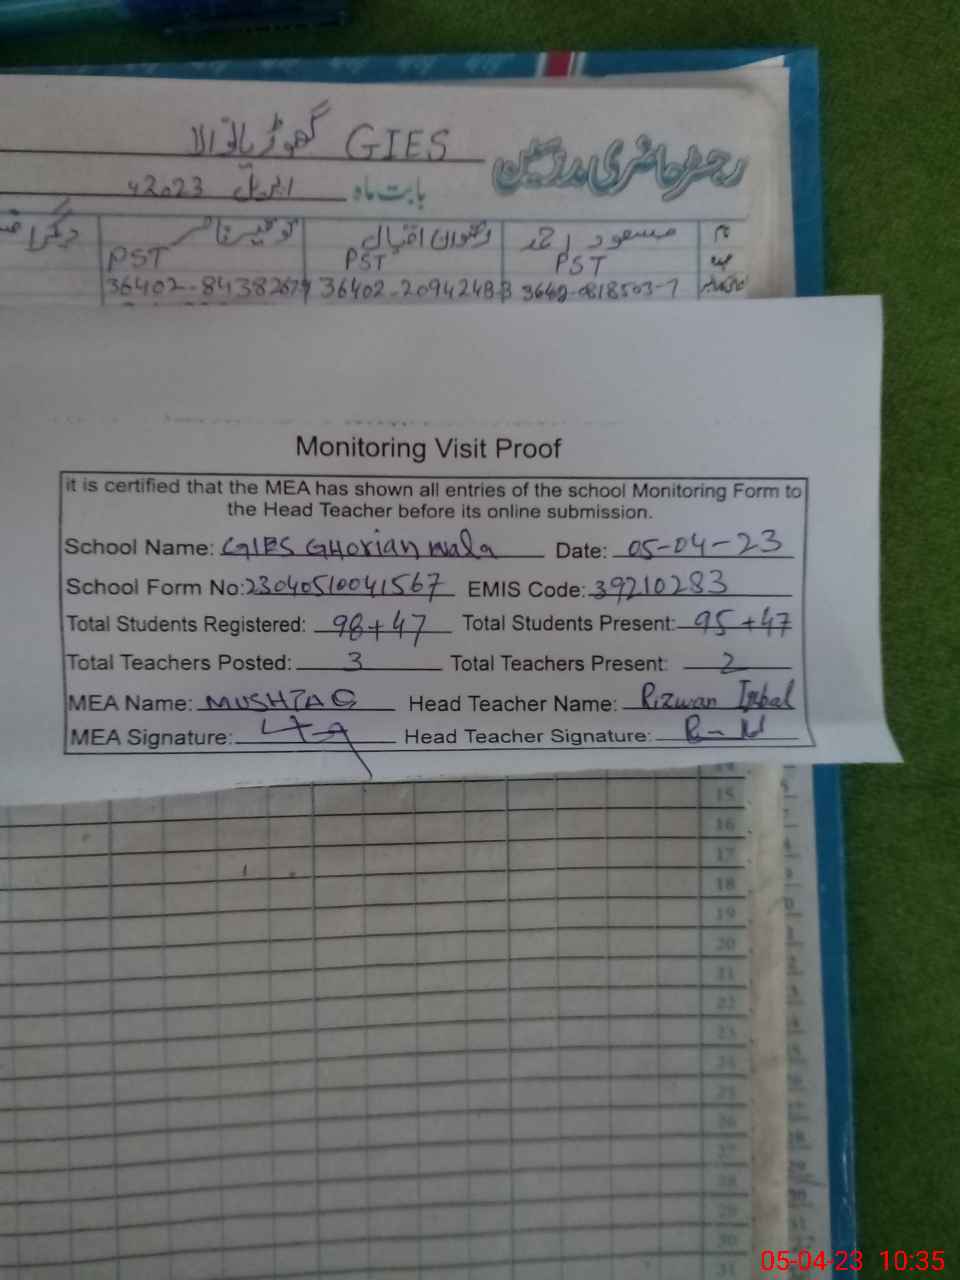 GIES گھوڑیانوالا
رجسٹر حاضری مدرسین
بابت ماہ اپریل 2023ء
نام مسعود احمد رضوان اقبال توقیر ناصر
عہدہ PST PST PST
3640-0818503-7 36402-2094248-3 36402-8438267
Monitoring Visit Proof
it is certified that the MEA has shown all entries of the school Monitoring Form to
the Head Teacher before its online submission.
School Name: GIES GHorianwala Date: 05-04-23
School Form No: 23040510041567 EMIS Code: 39210283
Total Students Registered: 98+47 Total Students Present: 95+47
Total Teachers Posted: 3 Total Teachers Present: 2
MEA Name: MUSHTAQ Head Teacher Name: Rizwan Iqbal
MEA Signature: Head Teacher Signature:
15
16
17
18
19
20
21
22
23
24
25
26
27
28
29
30
31
05-04-23 10:35